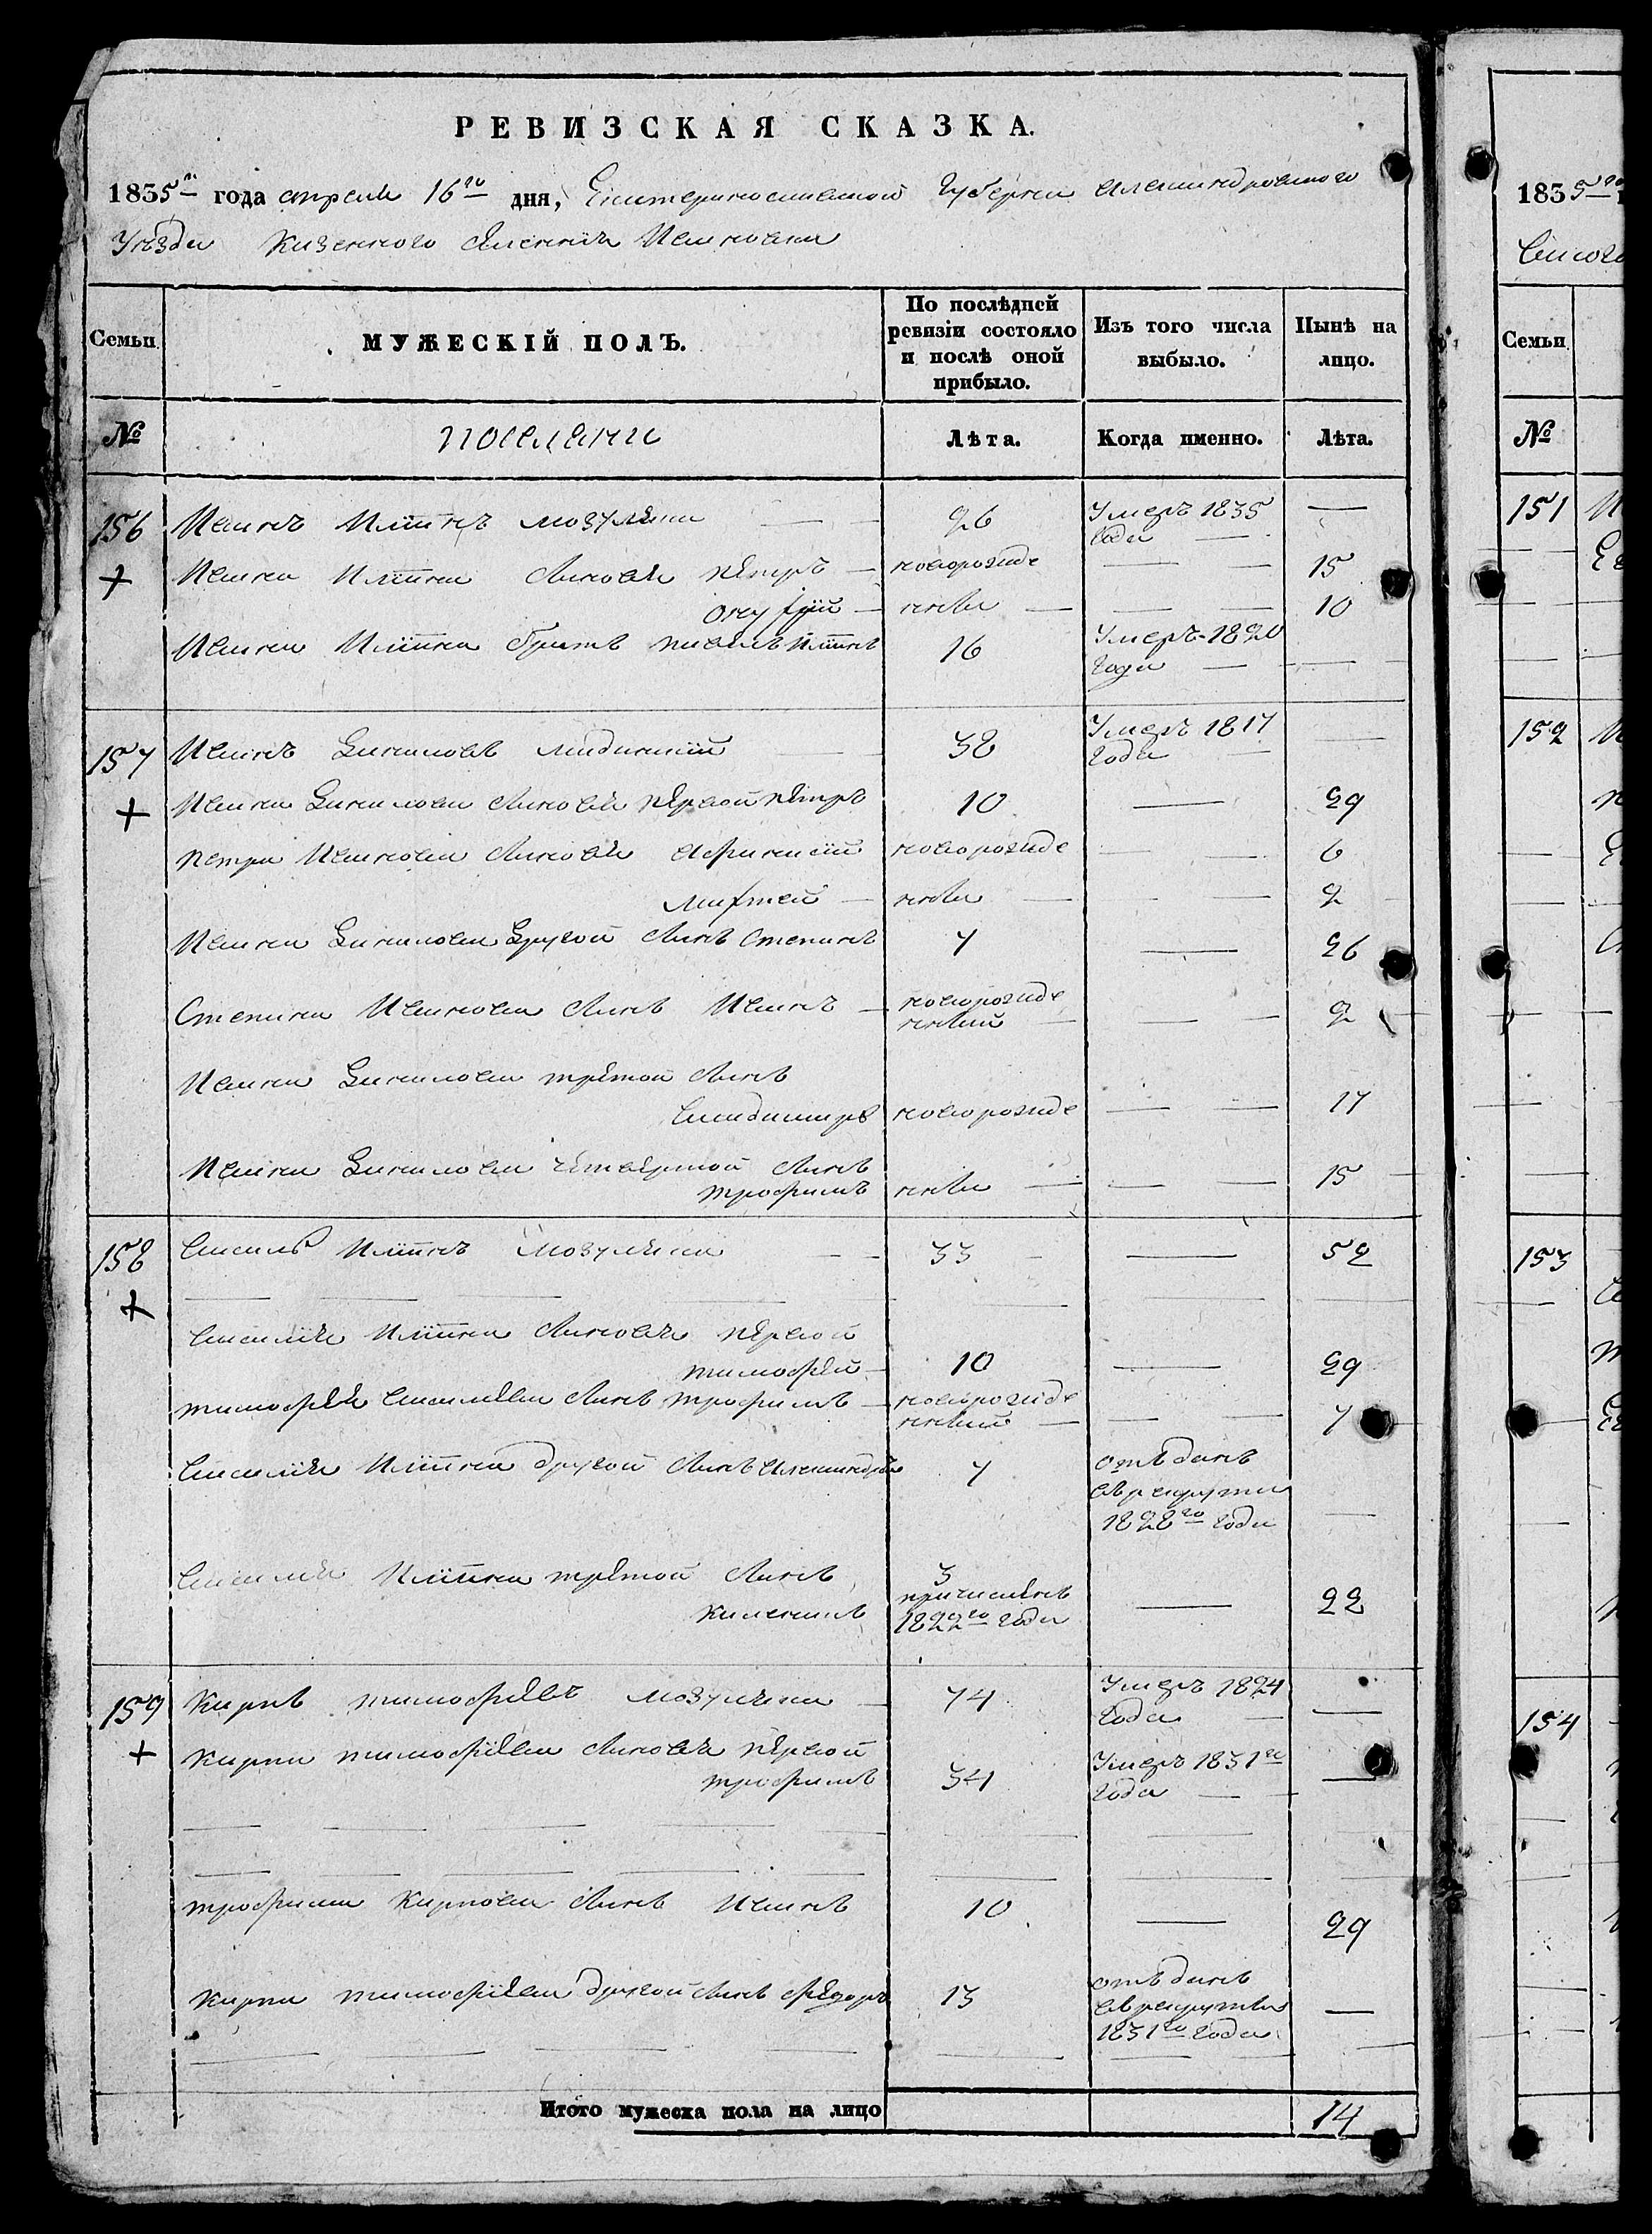 РЕВИЗСКАЯ СКАЗКА.
1835го года апреля 16го дня, Екатеринославской Губернии Александровского
Уезда Казенного Селения Ивановки
Семьи
МУЖЕСКІЙ ПОЛЪ.
По послѣдней ревизіи состояло и послѣ оной прибыло.
Изъ того числа выбыло.
Нынѣ на лицо.
№
поселяни
Лѣта.
Когда именно.
Лѣта.
156 Иванъ Ильинъ 26 Умеръ 1835 года —
Ивана Ильина Сыновья Петръ — новорожде — — 15
Онуфрій — нные — — — 10
Ивана Ильина братъ Павелъ Ильинъ 16 Умеръ 1820 года — —
157 Иванъ Даниловъ 38 Умеръ 1817 года — —
Ивана Данилова Сыновья первой Петръ 10 — 29
Петра Иванова Сыновья Афанасій новорожде — — 6
нные — — — 2
Ивана Данилова Другой Сынъ Степанъ 7 — 26
Степана Иванова Сынъ Иванъ — новорожде нный — — — 2
Ивана Данилова третой Сынъ
Владимиръ новорожде — — 17
Ивана Данилова четвертой Сынъ
трофимъ нные — — — 15
158 Василь Ильинъ 33 — 52
Василия Ильина Сыновья первой
тимофей — 10 — 29
тимофея Васильева Сынъ трофимъ — новорожде нный — — — 7
Василия Ильина другой Сынъ Александръ 7 отъданъ въ рекруты 1828го года —
Василия Ильина третой Сынъ 3
причисленъ 1822го года — 22
159 Карпъ тимофеевъ 74 Умеръ 1824 года — —
Карпа тимофеева Сыновья первой
трофимъ 34 Умеръ 1831го года — —
трофима Карпова Сынъ Иванъ 10 — 29
Карпа тимофеева другой Сынъ Федоръ 13 отъданъ въ рекруты 1831го года —
Итого мужеска пола на лицо 14
1835го
Семьи
№
151
152
153
154